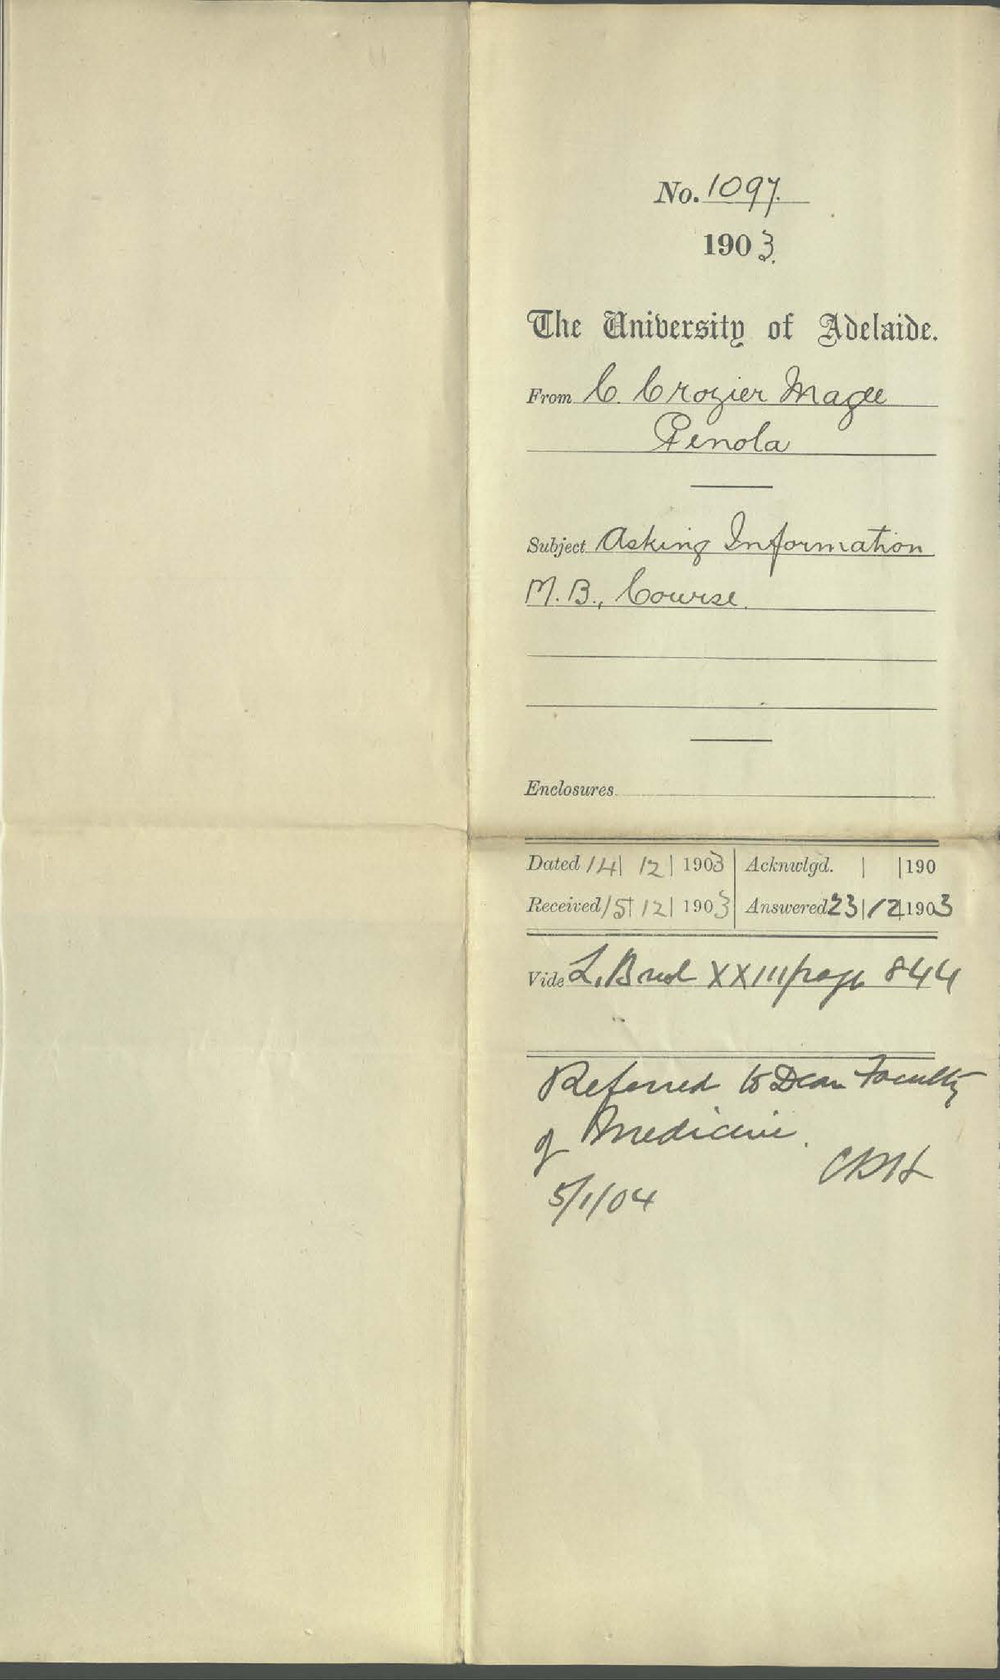 No. 1097.
1903.
The University of Adelaide.
From C. Crozier Magee
Penola
Subject Asking Information
M.B., Course.
Enclosures
Dated 14| 12| 1903 Acknwlgd. | |190
Received 15| 12| 1903 Answered 23|12|1903
Vide L. XXIII page 844
Referred to Dean Faculty
of Medicine.
5/1/04